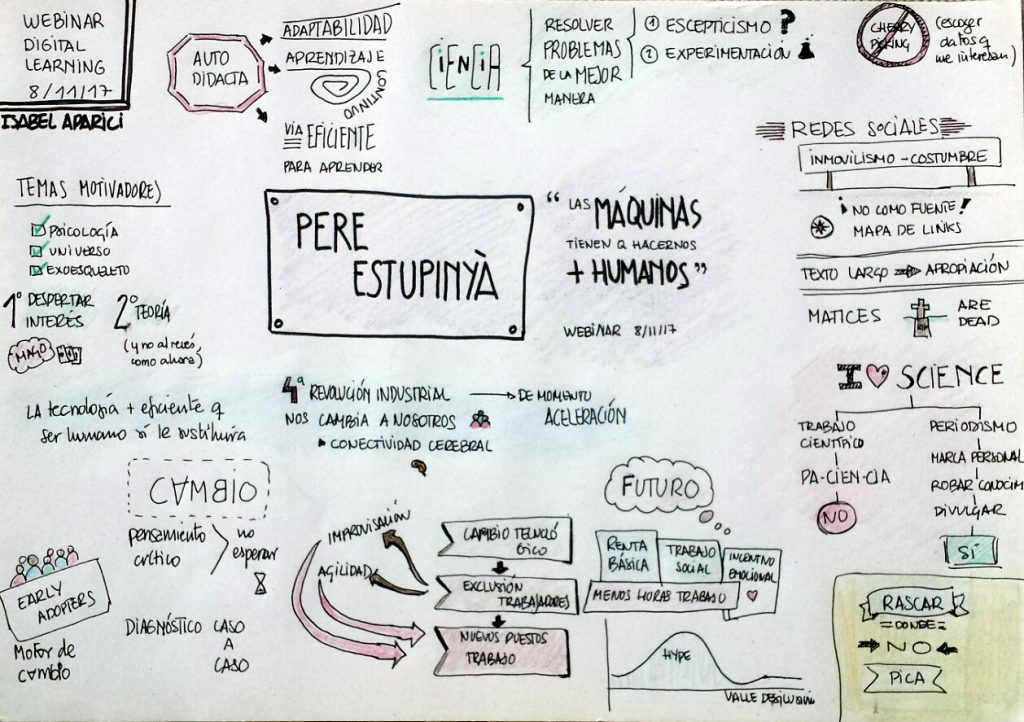 WEBINAR
DIGITAL
LEARNING
8/11/17
ISABEL APARICI
AUTO
DIDACTA
ADAPTABILIDAD
APRENDIZAJE
CONTINUO
VIA EFICIENTE
PARA APRENDER
CIENCIA
RESOLVER
PROBLEMAS
DE LA MEJOR
MANERA
1 ESCEPTICISMO ?
2 EXPERIMENTACIÓN
CHERRY
PICKING
(escoger
datos q
me interesan)
REDES SOCIALES
INMOVILISMO - COSTUMBRE
¡NO COMO FUENTE!
MAPA DE LINKS
TEXTO LARGO APROPIACIÓN
MATICES
ARE
DEAD
TEMAS MOTIVADORES
PSICOLOGÍA
UNIVERSO
EXOESQUELETO
1º DESPERTAR
INTERÉS
MAGO
2º TEORÍA
(y no al revés,
como ahora)
PERE
ESTUPINYÀ
"LAS MÁQUINAS
TIENEN Q HACERNOS
+ HUMANOS"
WEBINAR 8/11/17
I SCIENCE
TRABAJO
CIENTÍFICO
PA-CIEN-CIA
NO
PERIODISMO
MARCA PERSONAL
ROBAR CONOCIM
DIVULGAR
SÍ
LA tecnología + eficiente q
ser humano sí le sustituirá
4ª REVOLUCIÓN INDUSTRIAL
NOS CAMBIA A NOSOTROS
CONECTIVIDAD CEREBRAL
DE MOMENTO
ACELERACIÓN
CAMBIO
pensamiento
crítico
no
esperar
DIAGNÓSTICO CASO
A
CASO
EARLY
ADOPTERS
Motor de
cambio
IMPROVISACIÓN
AGILIDAD
CAMBIO TECNOLÓ
GICO
EXCLUSIÓN
TRABAJADORES
NUEVOS PUESTOS
TRABAJO
FUTURO
RENTA
BÁSICA
TRABAJO
SOCIAL
INCENTIVO
EMOCIONAL
MENOS HORAS TRABAJO
HYPE
VALLE DESILUSIÓN
RASCAR
=DONDE=
NO
PICA